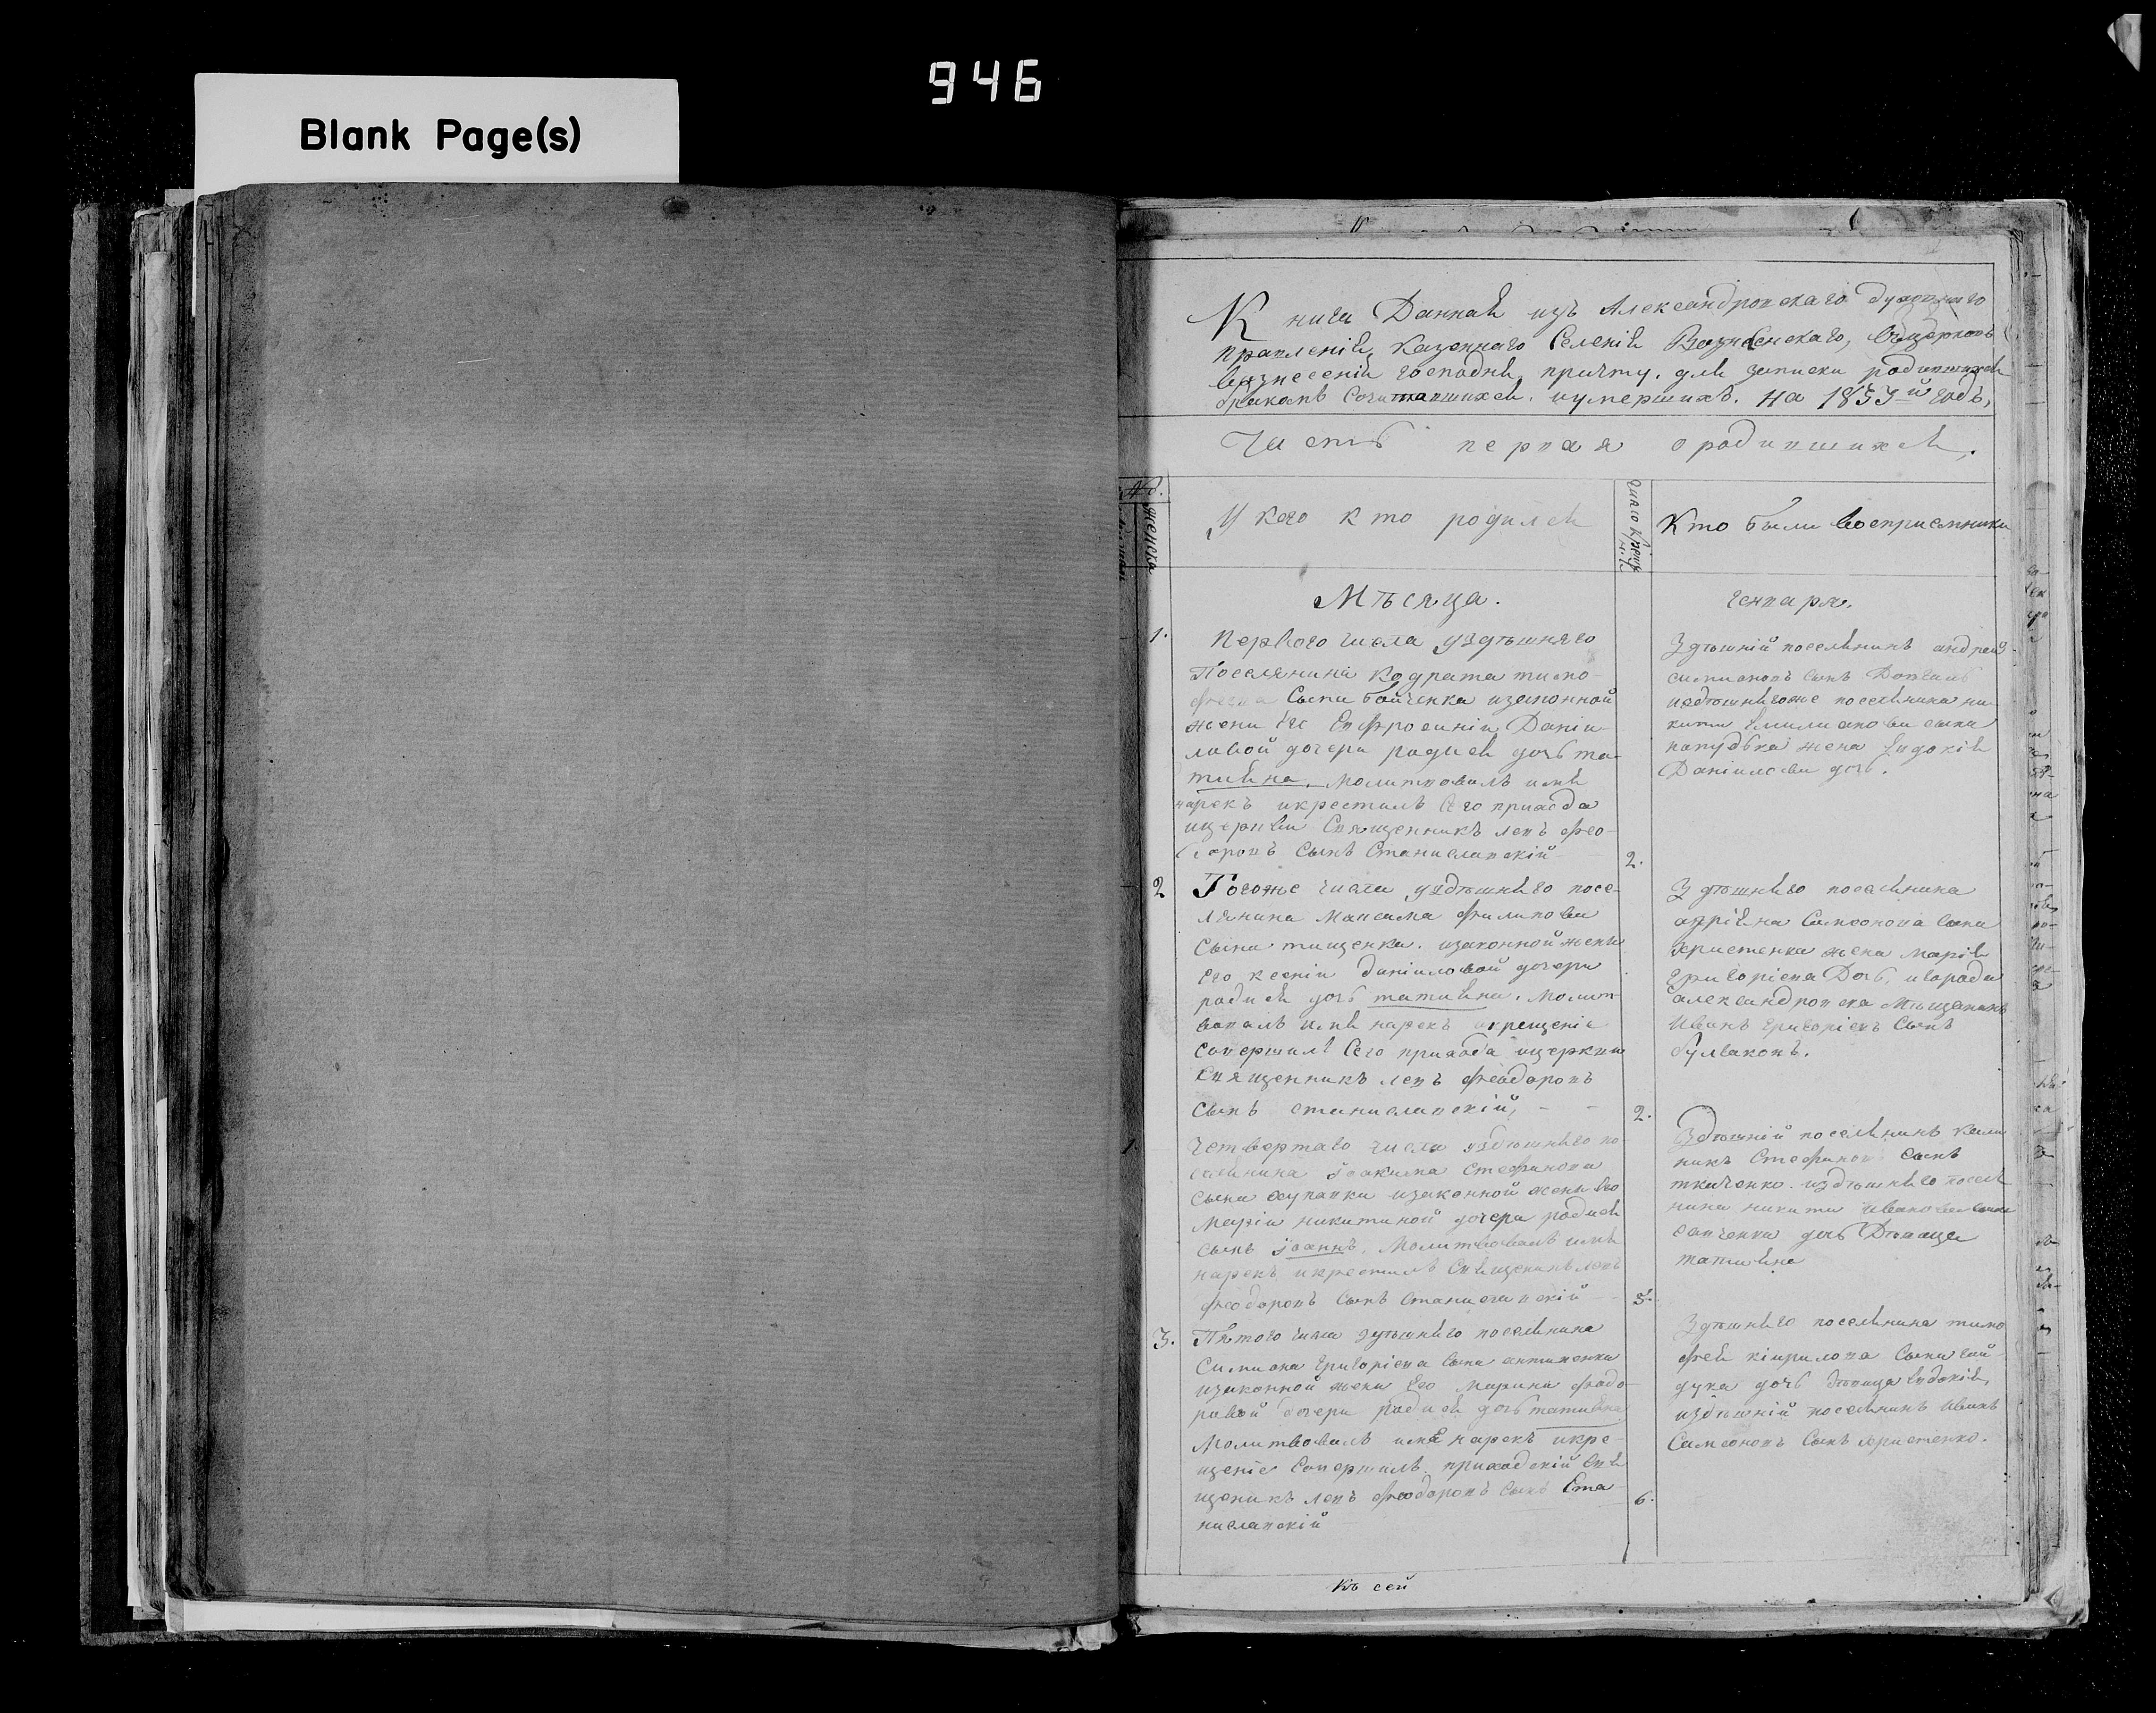 946
Blank Page(s)
Книга Данная изъ Александровскаго духовнаго
правленія, Казеннаго Селенія Вознесенскаго, Вцерковь
вознесенія господня, причту. для записки родившихся
бракомъ Сочитавшихся. иумершихъ. на 1833й годъ,
Часть первая ородившихся,
№.
женска
У кого кто родился
число крещенія
Кто были восприемники
Мѣсяца.
генваря.
1. Первого числа уздѣшняго
Поселянина Кодрата тимо-
феева Сына бойченка изаконной
жени его Евфросиніи Даніи-
ловой дочери родися дочь та-
тияна. молитвовалъ имя
нарекъ икрестилъ Сего прихода
ицеркви Священникъ левъ Фео-
доровъ Сынъ Станиславскій
2.
Здѣшній поселянинъ андрей
симионовъ Сынъ
издѣшнягоже поселянина ни-
кити Емилиянови сына
жена Евдокія
Даніилови дочь.
2 Тогоже числа уздѣшняго посе-
лянина Максима Филипови
Сына тищенка. изаконной жени
Его ксеніи даніиловой дочери
родися дочь татияна. молит-
вовалъ имя нарекъ икрещеніе
Совершилъ Сего прихода ицеркви
Священникъ левъ Феодоровъ
Сынъ станиславскій, - -
2.
Здѣшняго поселянина
андріяна Самсонова Сына
христенка жена марія
григоріева Дочь, игорода
александровска мѣщанинъ
Иванъ григоріевъ Сынъ
булваковъ.
1. Четвертаго числа уздѣшняго по-
селянина Іоакима Стефанова
Сына изаконной жени его
маріи никитиной дочери родися
сынъ Іоаннъ. Молитвовалъ имя
нарекъ икрестилъ Священикъ левъ
Феодоровъ Сынъ Станиславскій
5.
Здѣшній поселянинъ кали-
никъ Стефановъ Сынъ
ткаченко. издѣшняго поселя
нина никити Иванова сина
савченка дочь Дѣвица
татияна
3. Пятого числа здѣшняго поселянина
Симиона григоріева Сына антиненка
изаконной жени Его Марини Федо-
ровой дочери родися дочь татияна
Молитвовалъ имя нарекъ икре-
щеніе Совершилъ приходскій Свя
щеникъ левъ Феодоровъ Сынъ Ста
ниславскій
6.
Здѣшняго поселянина тимо
фея кіирилова Сына гай-
дука дочь дѣвица Евдокія,
издѣшній поселянинъ Иванъ
Самсоновъ Сынъ христенко.
Къ сей